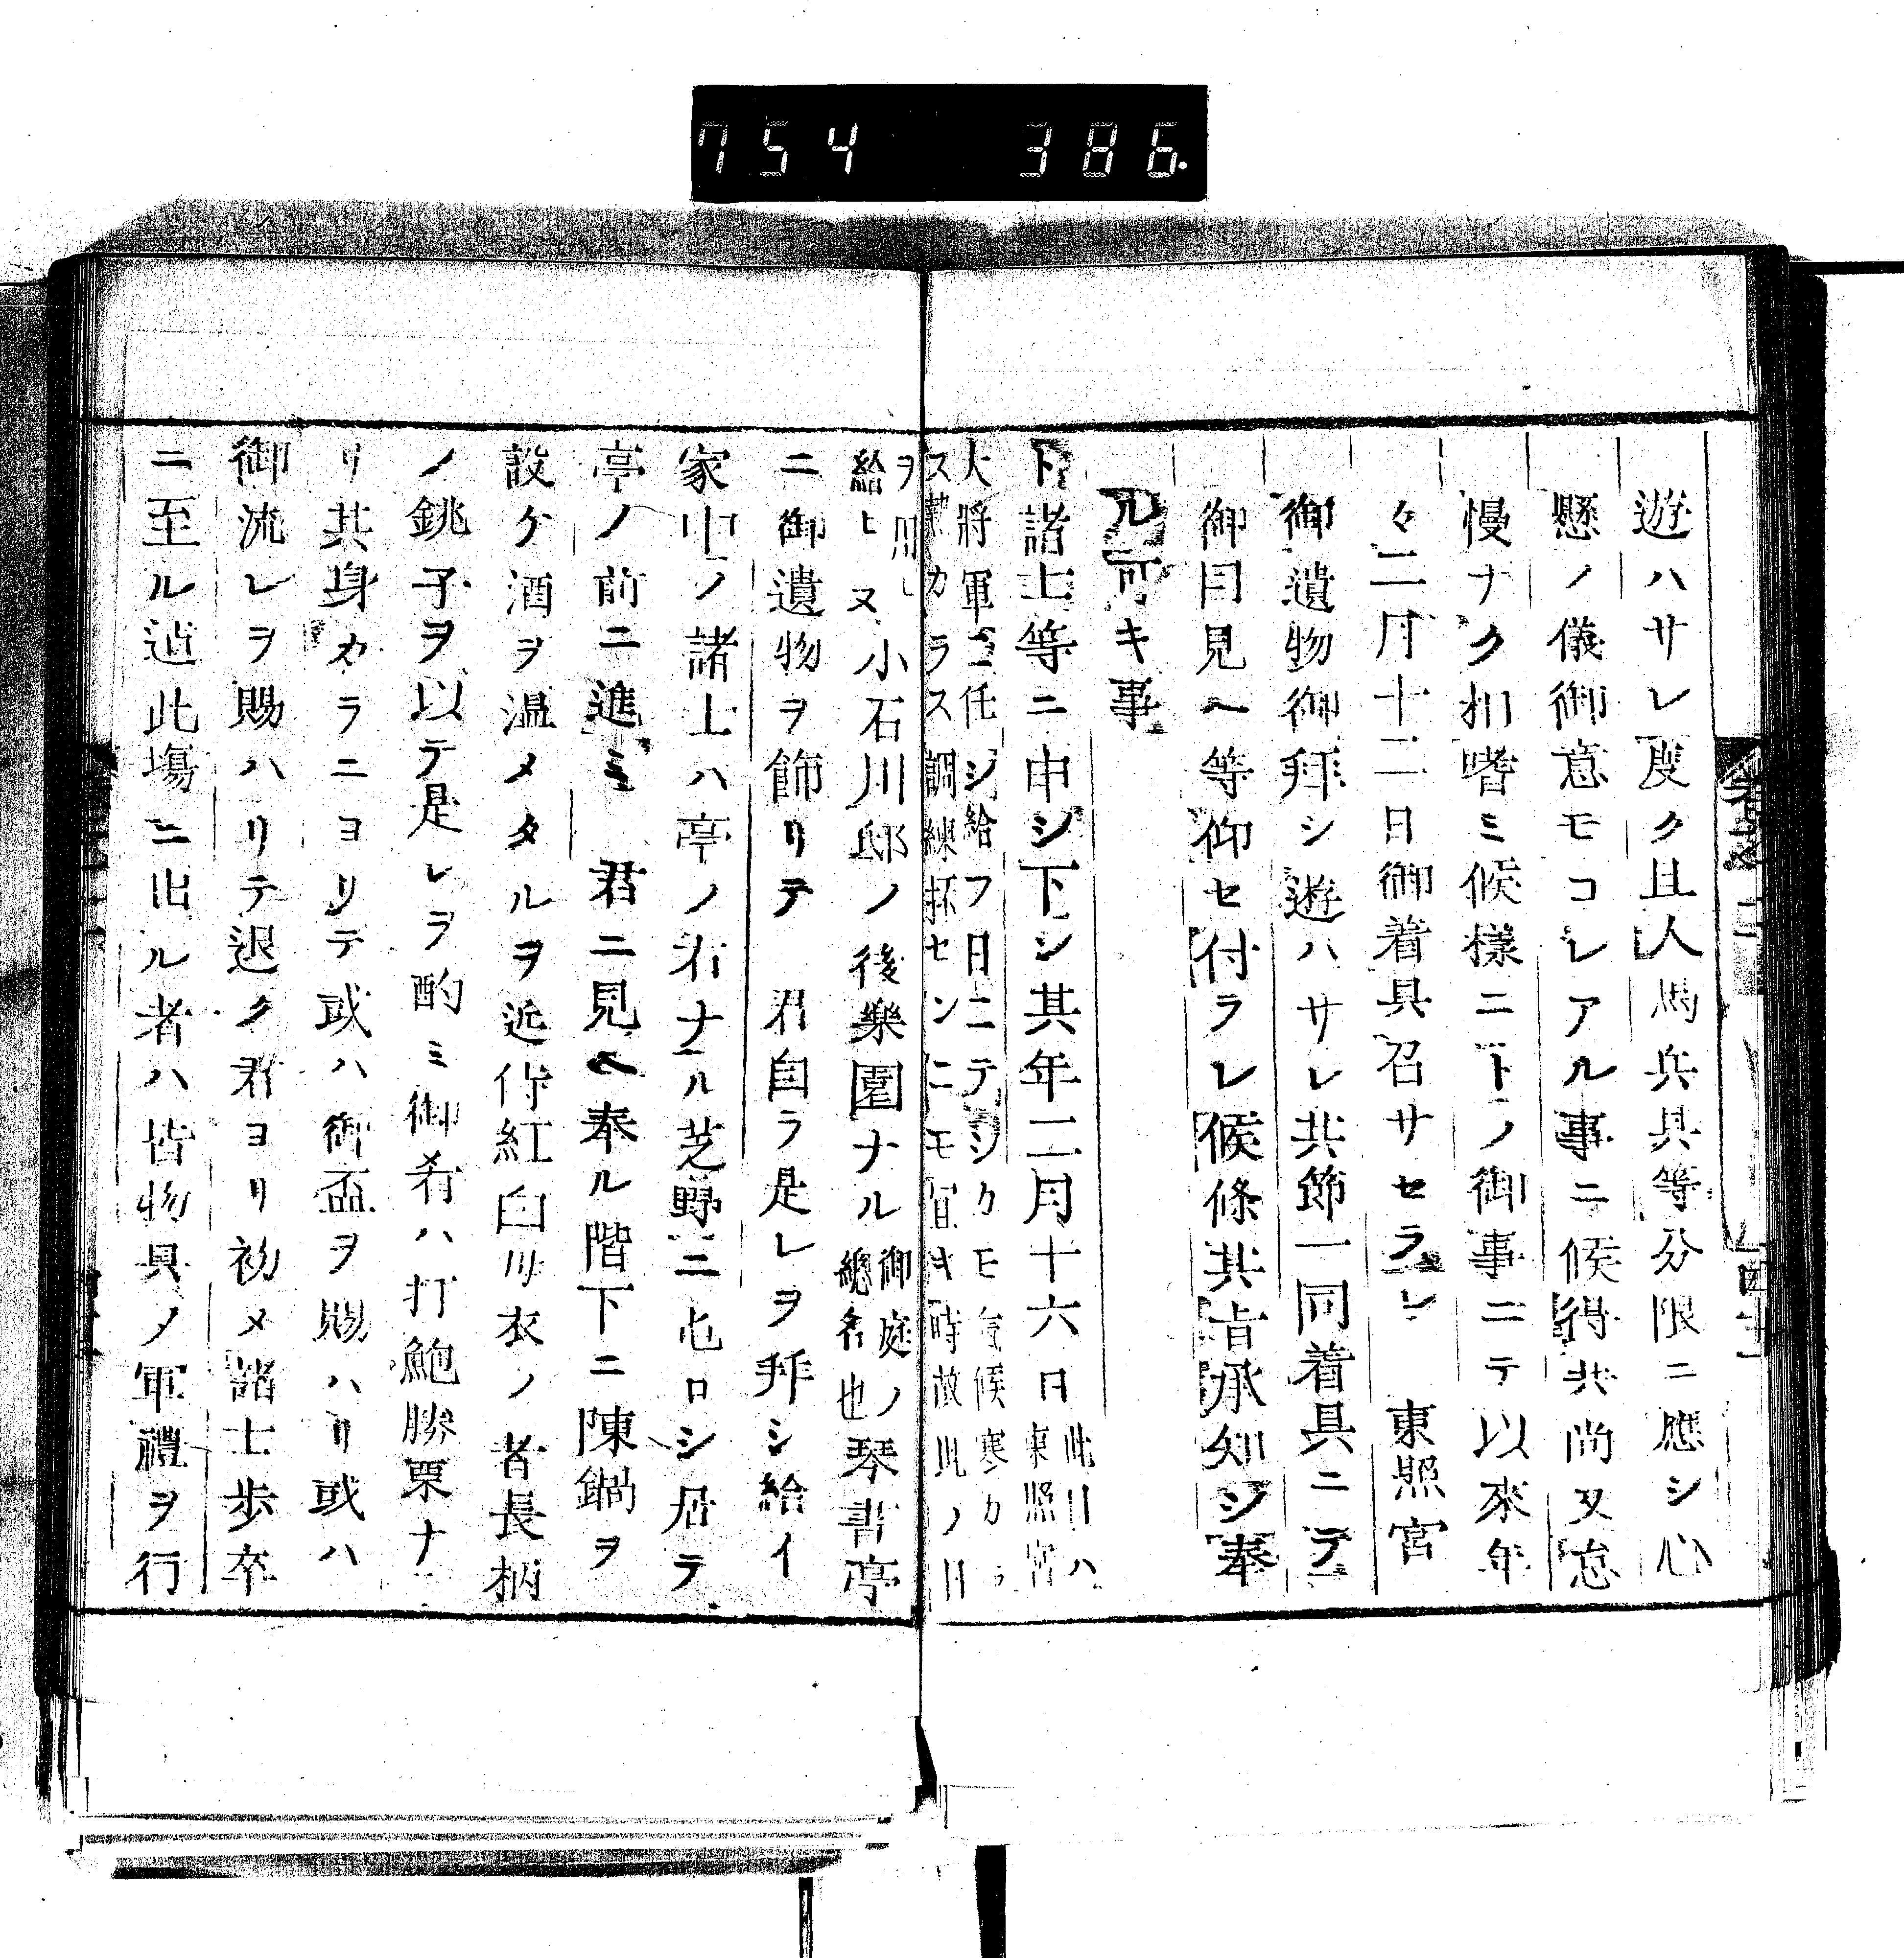 754 386
遊ハサレ度ク且人馬兵具等分限ニ應シ心
懸ノ儀御意モコレアル事ニ候得共尚又怠
慢ナク相嗜ミ候樣ニトノ御事ニテ以來年
々二月十二日御着具召サセラレ 東照宮
御遺物御拜シ遊ハサレ共節一同着具ニテ
御目見ヘ等仰セ付ラレ候條其旨承知シ奉
ル可キ事
ト諸士等ニ申シ下シ其年二月十六日
此日ハ
東照宮
大將軍ニ任シ給フ日ニテシクモ氣候寒カラ
ス熱カラス調練抔センニモ宜キ時故此ノ日
ヲ用ヒ
給ヒ又小石川邸ノ後樂園ナル
御庭ノ
總名也
琴書亭
ニ御遺物ヲ飾リテ 君自ラ是レヲ拜シ給イ
家中ノ諸士ハ亭ノ右ナル芝野ニ屯ロシ居テ
亭ノ前ニ進ミ 君ニ見ヘ奉ル階下ニ陳鍋ヲ
設ケ酒ヲ温メタルヲ近侍紅白川衣ノ者長柄
ノ銚子ヲ以テ是レヲ酌ミ御肴ハ打鮑勝栗ナ
リ其身カラニヨリテ或ハ御盃ヲ賜ハリ或ハ
御流レヲ賜ハリテ退ク君ヨリ初メ諸士歩卒
ニ至ル迠此塲ニ出ル者ハ皆物具ノ軍禮ヲ行